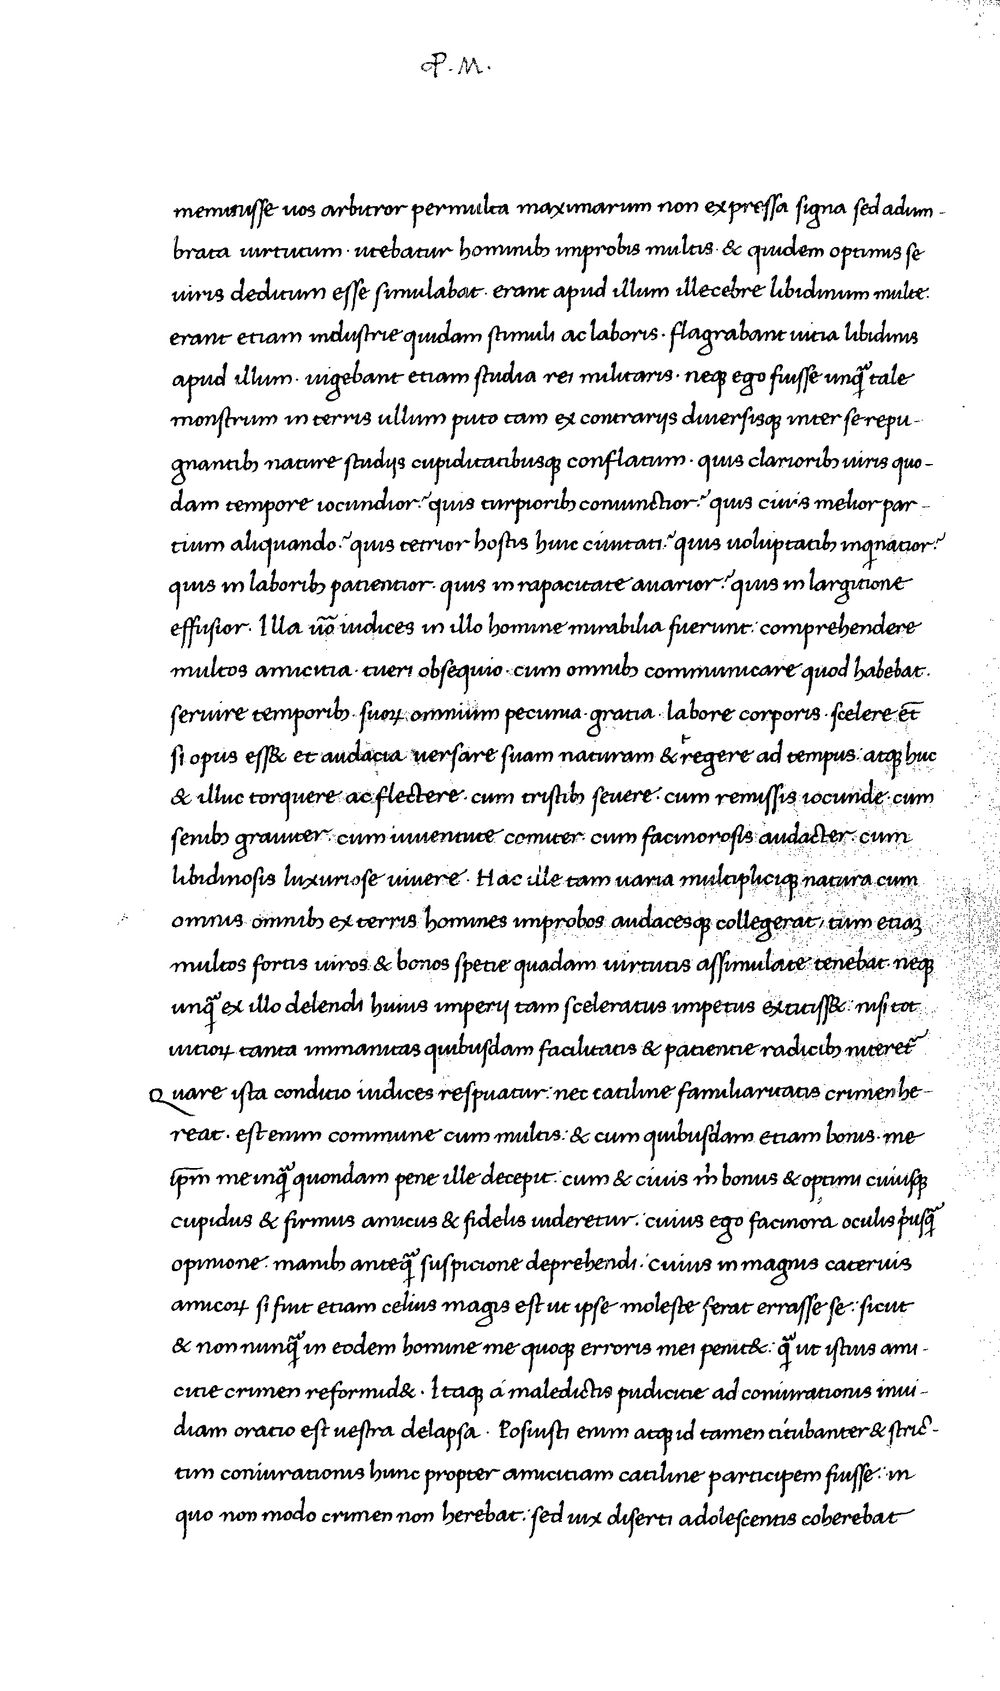 P. M.
meminisse uos arbitror permulta maximarum non expressa signa sed adum-
brata uirtutum · utebatur hominibꝫ improbis multis · & quidem optimis se
uiris deditum esse simulabat · erant apud illum illecebre libidinum multe :
erant etiam industrie quidam stimuli ac laboris · flagrabant uitia libidinis
apud illum · uigebant etiam studia rei militaris · neqꝫ ego fuisse unq̃ tale
monstrum in terris ullum puto tam ex contrarijs diuersisqꝫ inter se repu-
gnantibꝫ nature studijs cupiditatibusqꝫ conflatum · quis clarioribꝫ uiris quo-
dam tempore iocundior? quis turpioribꝫ coniunctior? quis ciuis melior par-
tium aliquando? quis tetrior hostis huic ciuitati? quis uoluptatibꝫ inqͥnatior?
quis in laboribꝫ patientior · quis in rapacitate auarior? quis in largitione
effusior · Illa ũo iudices in illo homine mirabilia fuerunt : comprehendere
multos amicitia · tueri obsequio · cum omnibꝫ communicare quod habebat ·
seruire temporibꝫ suoꝝ omnium pecunia · gratia · labore corporis · scelere et̄
si opus ess& et audacia uersare suam naturam & regere ad tempus : atqꝫ huc
& illuc torquere ac flectere · cum tristibꝫ seuere · cum remissis iocunde · cum
senibꝫ grauiter · cum iuuentute comiter · cum facinorosis audacter · cum
libidinosis luxuriose uiuere · Hac ille tam uaria multipliciqꝫ natura cum
omnis omnibꝫ ex terris homines improbos audacesqꝫ collegerat, tum etiaꝫ
multos fortis uiros & bonos spetie quadam uirtutis assimulate tenebat · neqꝫ
unq̃ ex illo delendi huius imperij tam sceleratus impetus extitiss& : nisi tot
uitioꝝ tanta immanitas quibusdam facilitatis & patientie radicibꝫ niteret᷑
Quare ista conditio iudices respuatur : nec catiline familiaritatis crimen he-
reat · est enim commune cum multis : & cum quibusdam etiam bonis · me
ip̄m me inq̃ quondam pene ille decepit : cum & ciuis m̊ bonus & optimi cuiusqꝫ
cupidus & firmus amicus & fidelis uideretur : cuius ego facinora oculis p̓usq̃
opinione : manibꝫ anteq̃ suspicione deprehendi : cuius in magnis cateruis
amicoꝝ si fuit etiam celius magis est ut ipse moleste ferat errasse se : sicut
& non nunq̃ in eodem homine me quoqꝫ erroris mei penit& : q̃ ut istius ami-
citie crimen reformid& · Itaqꝫ á maledictis pudicitie ad coniurationis inui-
diam oratio est uestra delapsa · Posuisti enim atqꝫ id tamen titubanter & stric̄-
tim coniurationis hunc propter amicitiam catiline participem fuisse : in
quo non modo crimen non herebat : sed uix diserti adolescentis coherebat